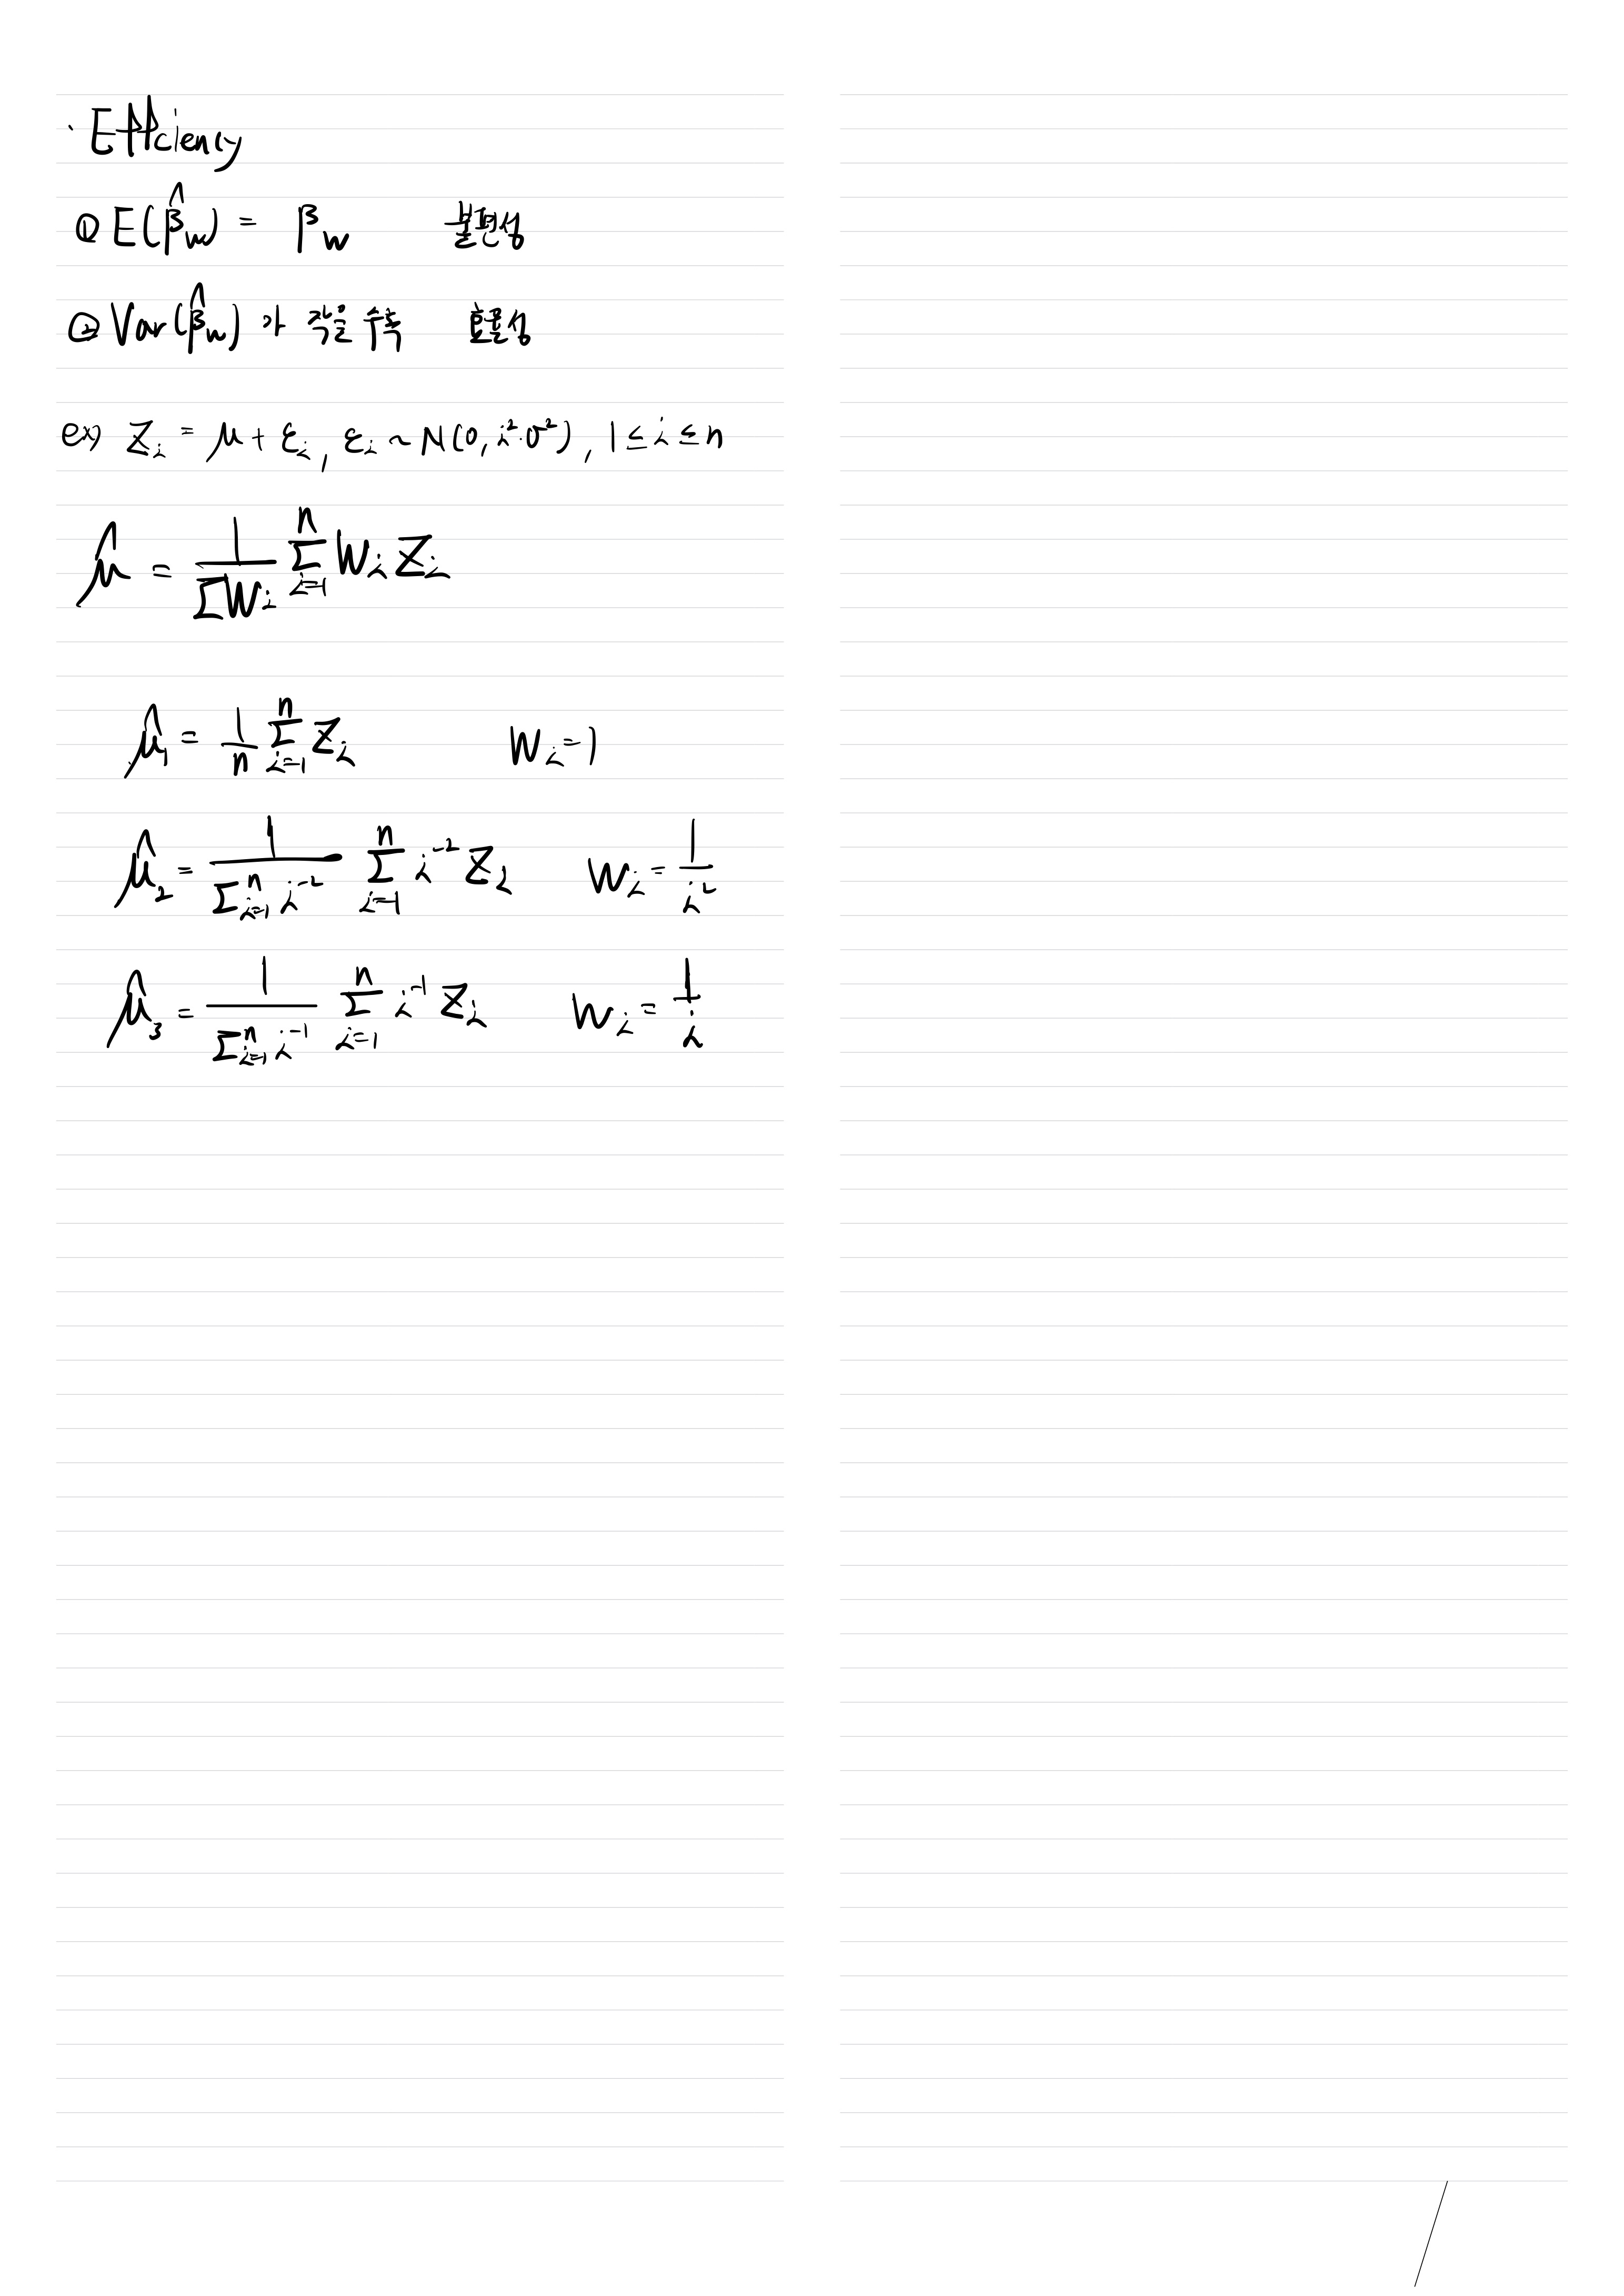 · Efficiency
① E(β̂_w) = β_w 불편성
② Var(β̂_w) 가 작을수록 효율성
ex) Z_i = μ + ε_i, ε_i ~ N(0, i²·σ²), 1 ≤ i ≤ n
μ̂ = 1/(ΣW_i) Σ_{i=1}^{n} W_i Z_i
μ̂_1 = 1/n Σ_{i=1}^{n} Z_i W_i = 1
μ̂_2 = 1/(Σ_{i=1}^{n} i^{-2}) Σ_{i=1}^{n} i^{-2} Z_i W_i = 1/i²
μ̂_3 = 1/(Σ_{i=1}^{n} i^{-1}) Σ_{i=1}^{n} i^{-1} Z_i W_i = 1/i